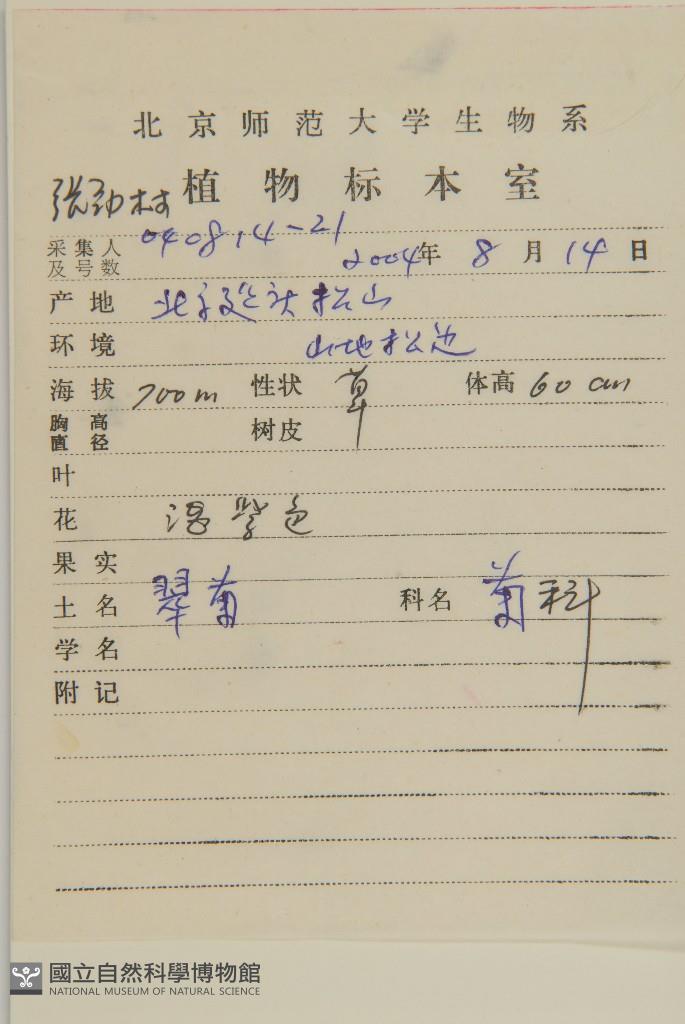 北京师范大学生物系
植物标本室
张劲林
采集人及号数 040814-21 2004年 8月 14日
产地 北京延庆松山
环境 山地路边
海拔 700m 性状 草 体高 60cm
胸高直径 树皮
叶
花 紫色
果实
土名 翠菊 科名 菊科
学名
附记
國立自然科學博物館
NATIONAL MUSEUM OF NATURAL SCIENCE